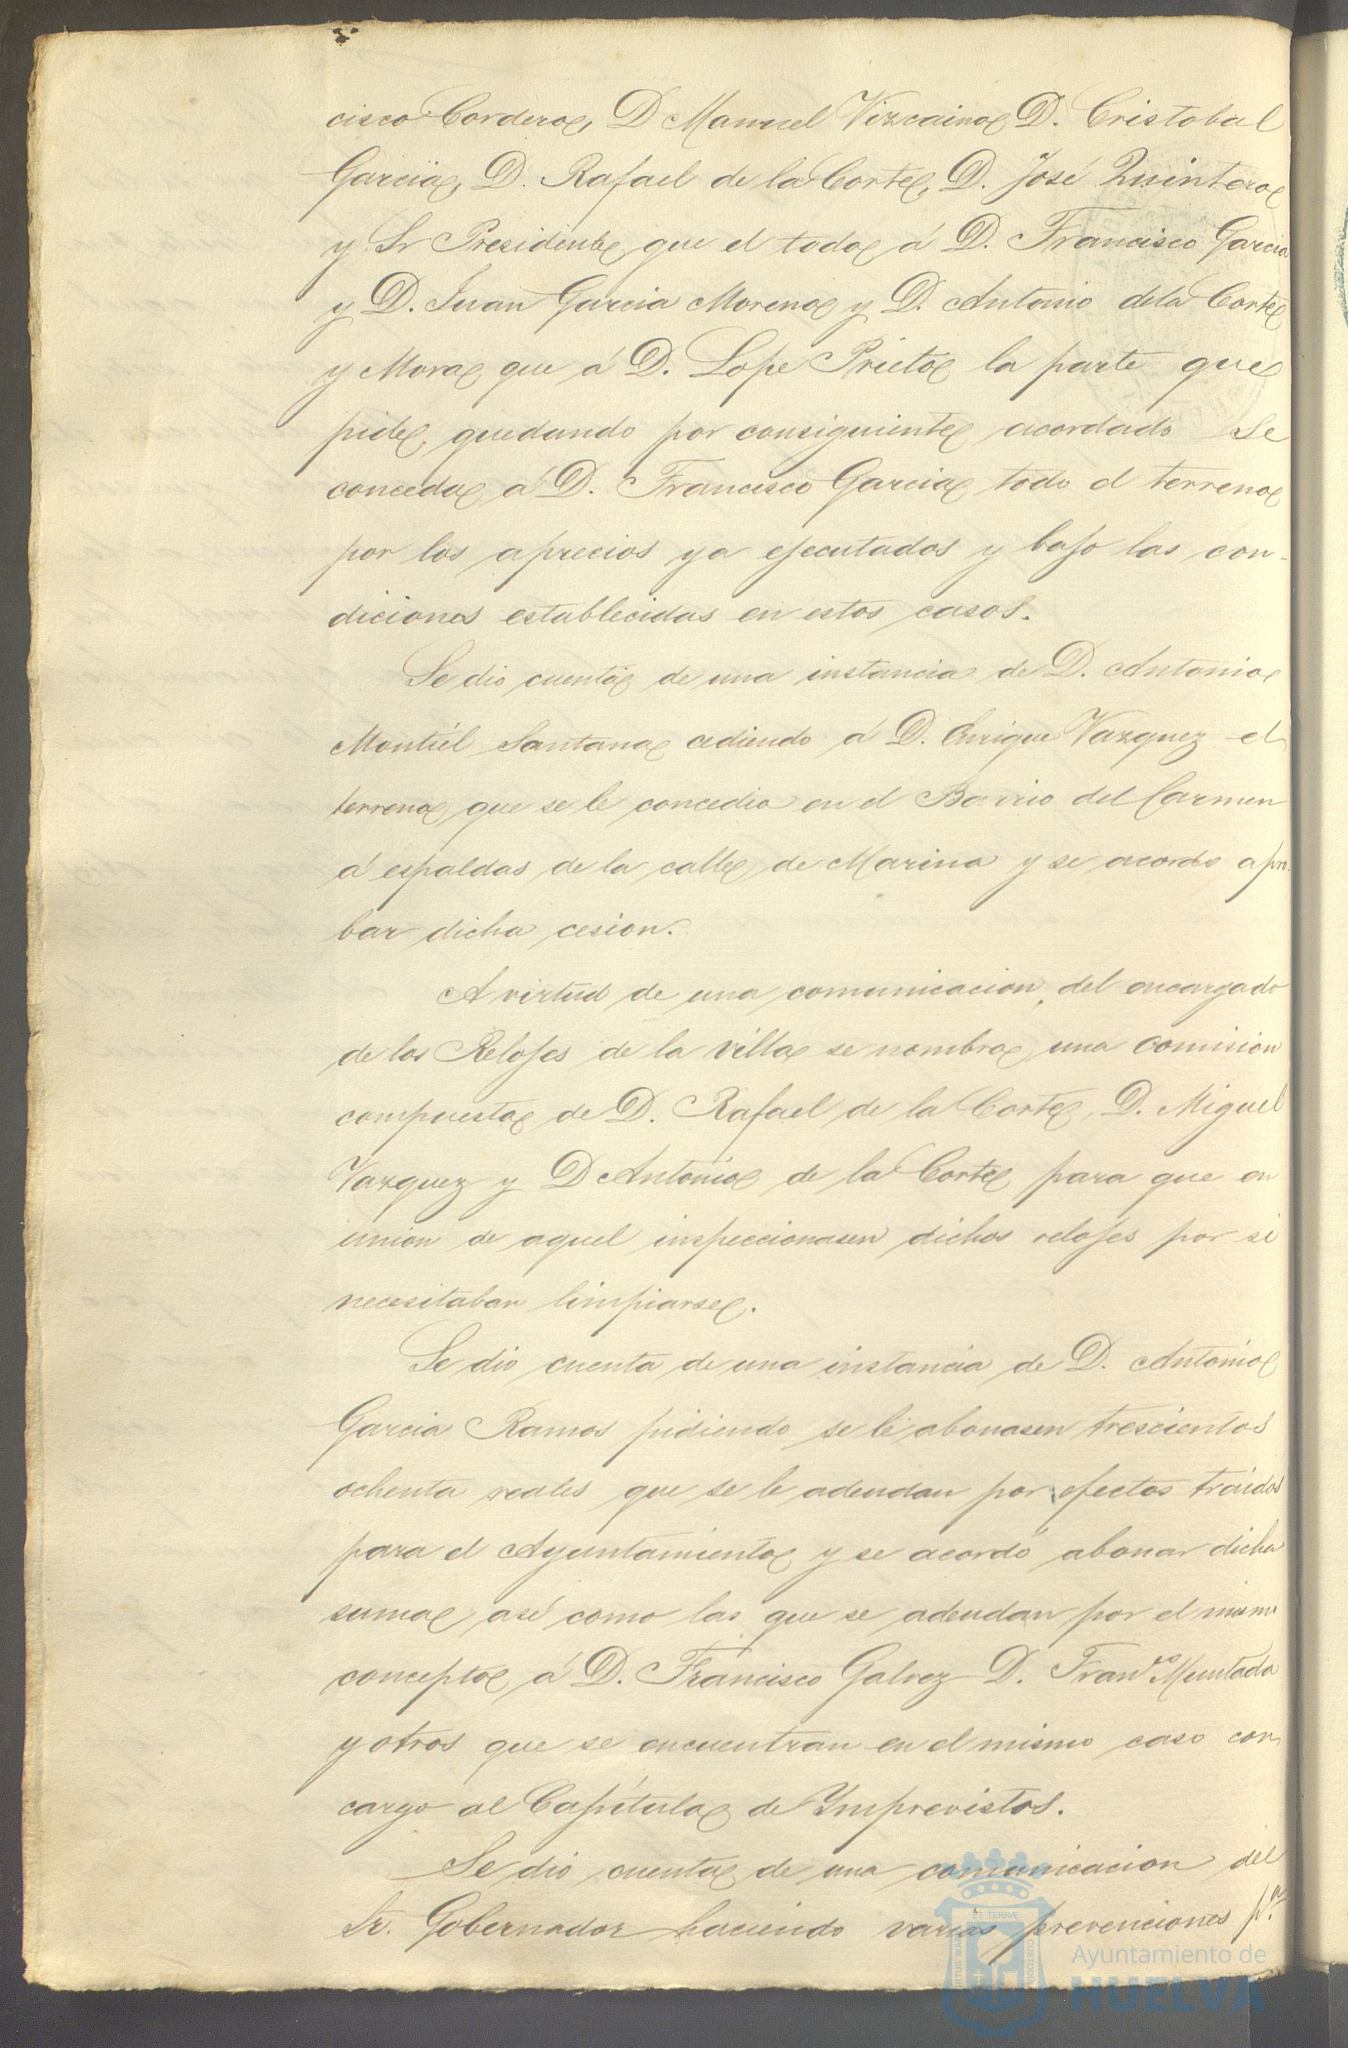 cisco Cordero, D Manuel Vizcaino D. Cristobal
Garcia, D. Rafael de la Corte, D. José Quintero
y Sr Presidente que el todo á D. Francisco Garcia
y D. Juan Garcia Moreno y D. Antonio dela Corte
y Mora que á D. Lope Prieto la parte que
pide, quedando por consiguiente acordado se
conceda á D. Francisco Garcia todo el terreno
por los aprecios ya ejecutados y bajo las con-
diciones establecidas en estos casos.
Se dio cuenta de una instancia de D. Antonio
Montiél Santana cediendo á D. Enrique Vazquez el
terreno que se le concedio en el Barrio del Carmen
á espaldas de la calle de Marina y se acordo apro-
bar dicha cesion.
A virtud de una comunicacion del encargado
de los Relojes de la villa se nombra una comision
compuesta de D. Rafael de la Corte, D. Miguel
Vazquez y D Antonio de la Corte para que en
union de aquel inspeccionasen dichos relojes por si
necesitaban limpiarse.
Se dio cuenta de una instancia de D. Antonio
Garcia Ramos pidiendo se le abonasen trescientos
ochenta reales que se le adeudan por efectos traidos
para el Ayuntamiento y se acordó abonar dicha
suma asi como las que se adeudan por el mismo
concepto á D. Francisco Galvez D. Fran.co Muntada
y otros que se encuentran en el mismo caso con
cargo al Capítulo de Ymprevistos.
Se dió cuenta de una comunicacion del
Sr. Gobernador haciendo varias prevenciones p.a
ET TERRÆ
Ayuntamiento de
HUELVA